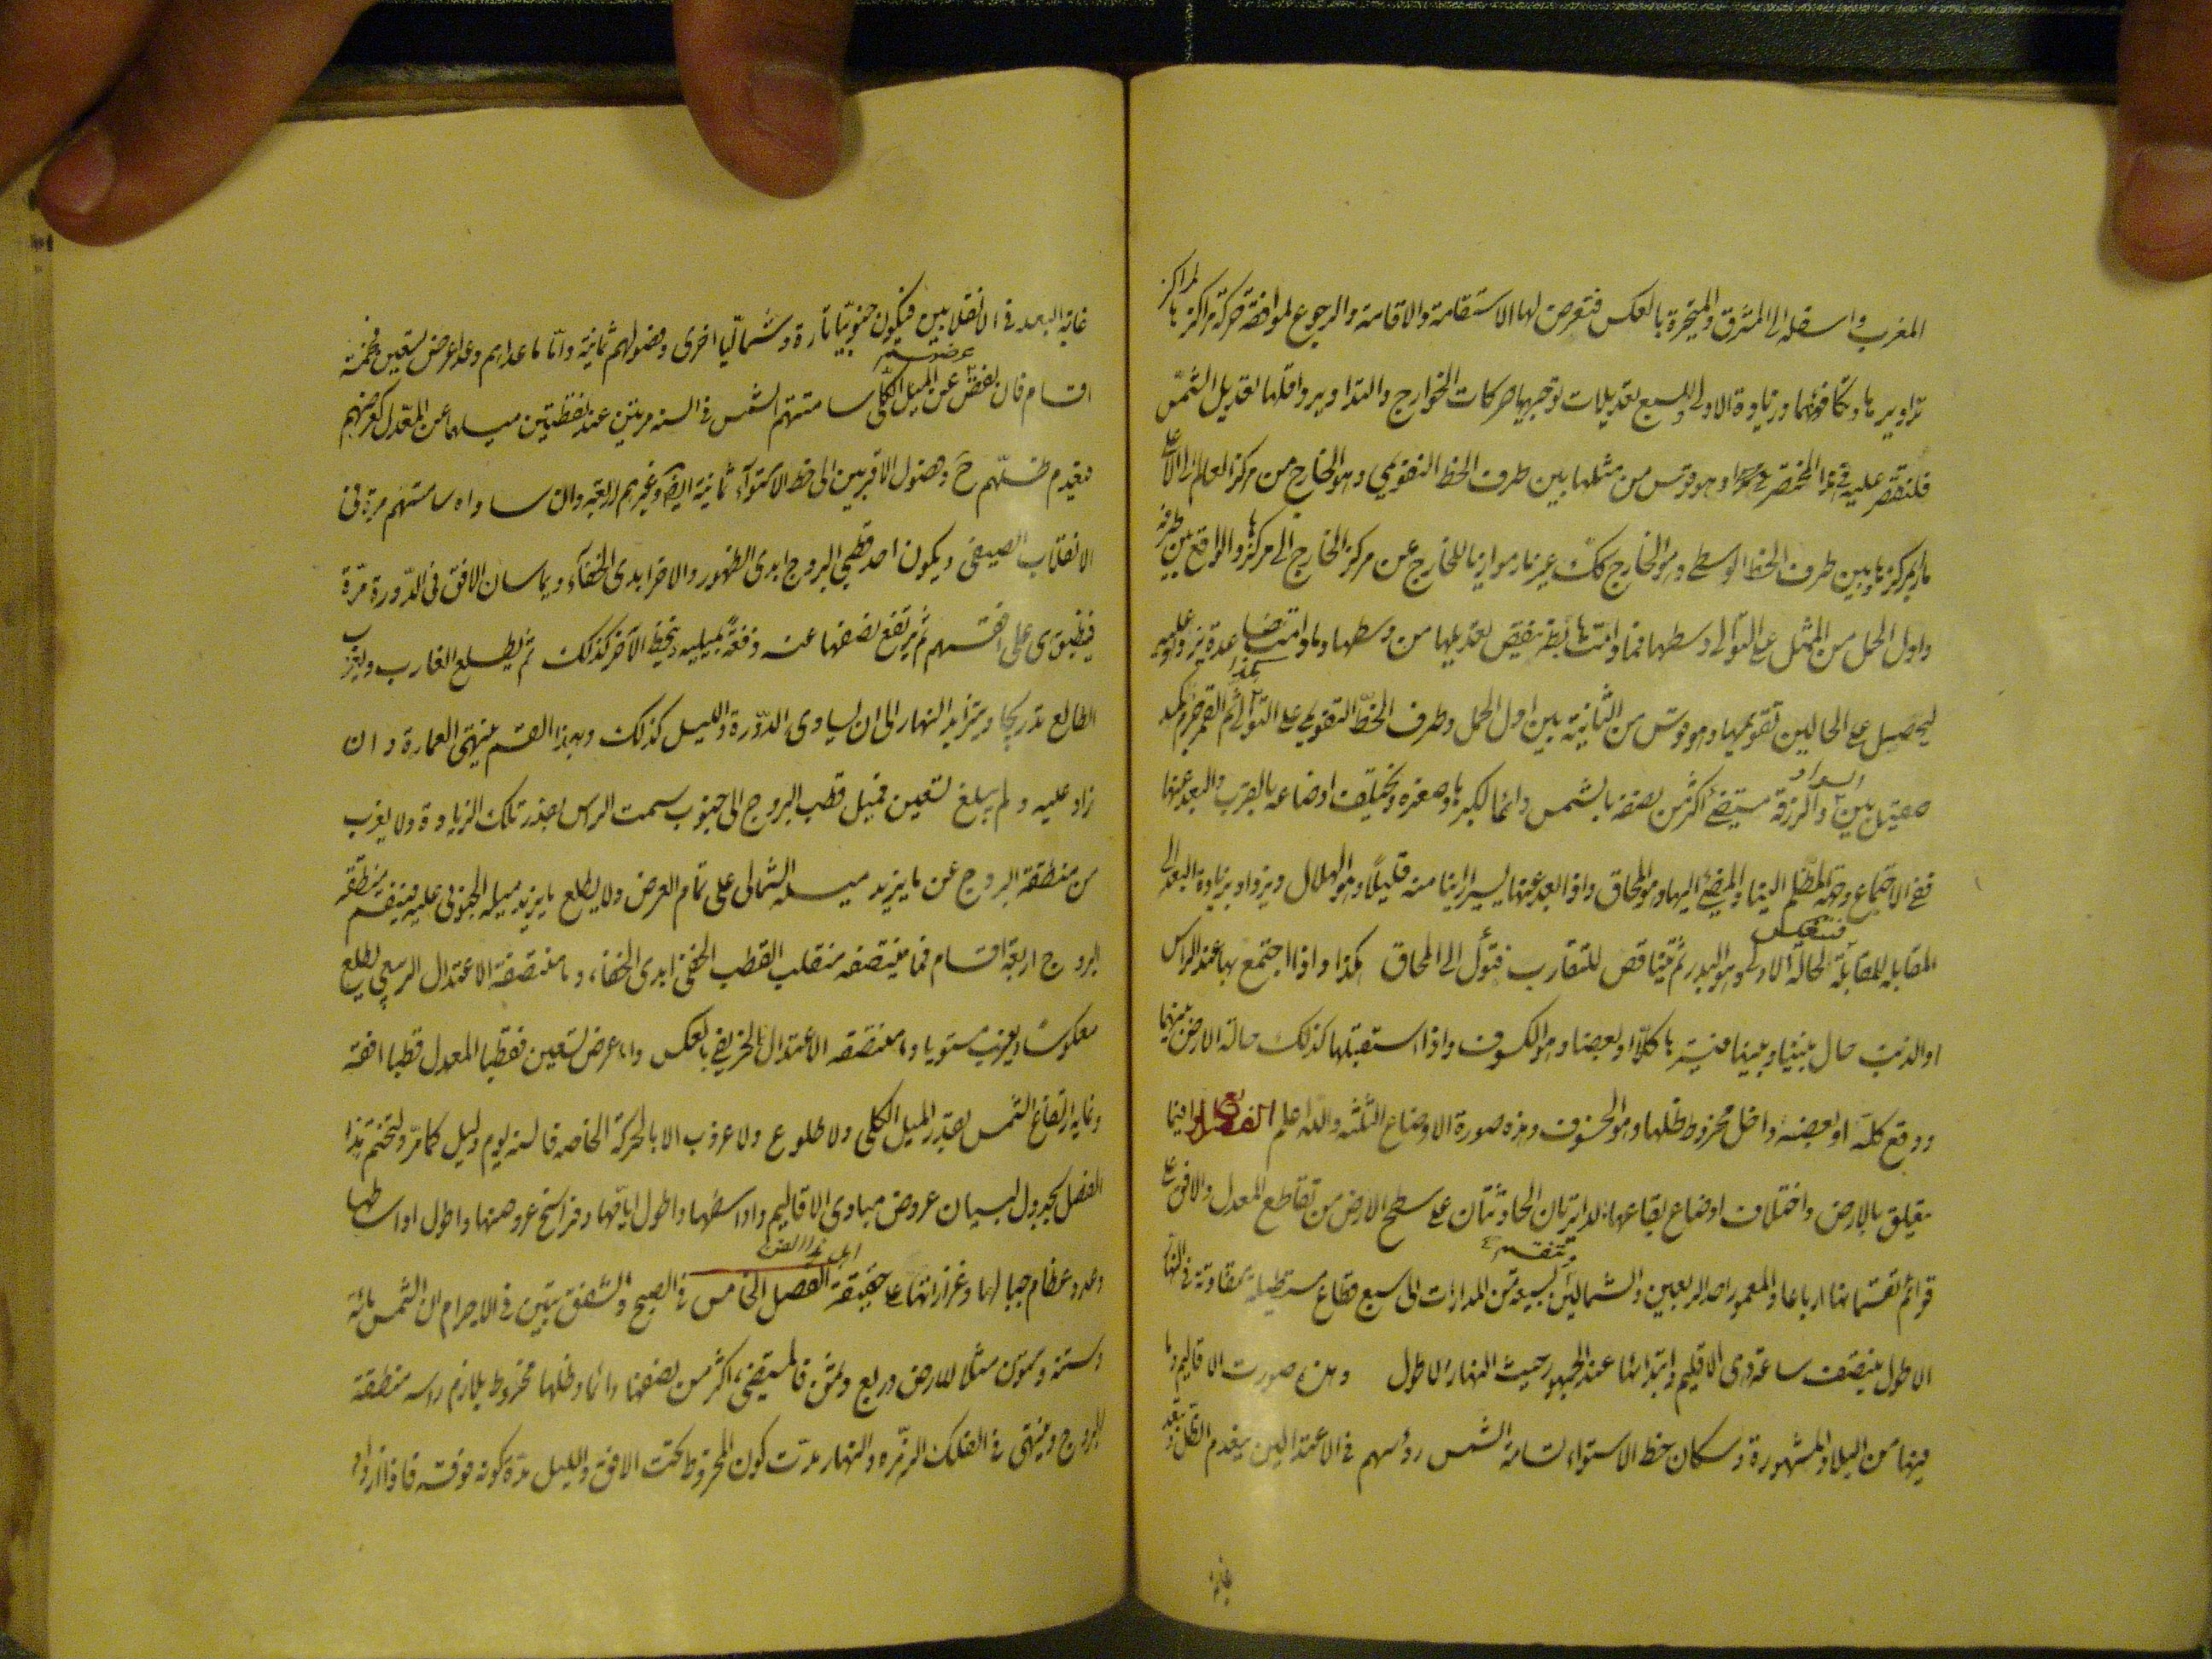 المغرب واسفله الى المشرق والمتحيرة بالعكس فتعرض لها الاستقامة والاقامة والرجوع لموافقة حركة مراكز
تداويرها وتكافؤهما وزيادة الاولى وللسبع تعديلات توجبها حركات الخوارج والتداوير واقلها تعديل الشمس
فلنقتصر عليه في هذا المختصر وهو قوس من ممثلها بين طرف الخط التقويمي وهو الخارج من مركز العالم الى الاعلى
مارا بمركزها وبين طرف الخط الوسطي وهو الخارج كك غير مار موازيا للخارج عن مركز الخارج الى مركزها والواقع بين طرفه
واول الحمل من الممثل على التوالي وسطها فما دامت هابطة ينقص تعديلها من وسطها وما دامت صاعدة يزاد عليه
ليحصل على الحالين تقويمها وهو قوس من الثانية بين اول الحمل وطرف الخط التقويمي على التوالي ثم القمر جرم كمد
صقيل بين السواد والزرقة مستضيء اكثر من نصفه بالشمس دائما لكبرها وصغره وتختلف اوضاعه بالقرب والبعد عنها
ففي الاجتماع وجهه المظلم الينا والمضيء اليها وهو المحاق واذا بعد عنها يسيرا راينا منه قليلا وهو الهلال ويزداد بزيادة البعد الى
المقابلة للمقابلة فتنعكس الحالة الاولى وهو البدر ثم يتناقص للتقارب فتؤل الى المحاق هكذا واذا اجتمع بها عند الراس
او الذنب حال بيننا وبينها فيسترها كلا او بعضا وهو الكسوف واذا استقبلها كذلك حالت الارض بينهما
ووقع كله او بعضه داخل مخروط ظلها وهو الخسوف وهذه صورة الاوضاع الثلثة والله اعلم الفصل الرابع فيما
يتعلق بالارض واختلاف اوضاع بقاعها الدائرتان الحادثتان على سطح الارض من تقاطع المعدل والافق على
قوائم تقسمانها ارباعا والمعمور احد الربعين الشماليين وينقسم بسبعة من المدارات الى سبع قطاع مستطيلة متفاوتة في النهار
الاطول بنصف ساعة وهي الاقليم وابتداؤها عند الجمهور حيث النهار الاطول وهذه صورت الاقاليم وما
فيها من البلاد المشهورة وسكان خط الاستواء تسامت الشمس رؤسهم في الاعتدالين فيعدم الظل وتبعد
غاية
غاية البعد في الانقلابين فيكون جنوبيا تارة وشماليا اخرى وفصولهم ثمانية واما ما عداهم وعدا عرض تسعين فخمسة
اقسام فان نقص عرضه عن الميل الكلي سامتتهم الشمس في السنة مرتين عند نقطتين ميلهما عن المعدل كعرضهم
فيعدم ظلهم ح وفصول الاقربين الى خط الاستواء ثمانية ايضا وغيرهم اربعة وان ساواه سامتتهم مرة في
الانقلاب الصيفي ويكون احد قطبي البروج ابدي الظهور والاخر ابدي الخفاء ويماسان الافق في الدورة مرة
فينطبق على افقهم ثم يرتفع نصفها عنه دفعة بميله وينحط الآخر كذلك ثم يطلع الغارب ويغرب
الطالع تدريجا ويتزايد النهار الى ان يساوي الدورة والليل كذلك وبهذا القسم ينتهي العمارة وان
زاد عليه ولم يبلغ تسعين فميل قطب البروج الى جنوب سمت الراس بقدر تلك الزيادة ولا يغرب
من منطقة البروج عن ما يزيد ميله الشمالي على تمام العرض ولا يطلع ما يزيد ميله الجنوبي عليه فينقسم منطقة
البروج اربعة اقسام فما ينتصفه منقلب القطب الخفي ابدي الخفاء وما ينتصفه الاعتدال الربيعي يطلع
معكوسا ويغرب مستويا وما ينتصفه الاعتدال الخريفي بالعكس واما عرض تسعين فقطبا المعدل قطبا افقه
وغاية ارتفاع الشمس بقدر الميل الكلي ولا طلوع ولا غروب الا بالحركة الخاصة فالسنة يوم وليل كما مر ولنختم هذا
الفصل بجدول لبيان عروض مبادي الاقاليم واواسطها واطول ايامها وفراسخ عروضها واطول اواسطها
وعدد عظام جبالها وغزارانها على حقيقة اهل هذا الفن الفصل الخامس في الصبح والشفق تبين في الاجرام ان الشمس مائة
وستة وستون مثلا للارض وربع وثمن فالمستضيء اكثر من نصفها دائما وظلها مخروط يلازم راسه منطقة
البروج وينتهي في الفلك الزهرة والنهار مدت كون المخروط تحت الافق والليل مدة كونه فوقه فاذا ازداد